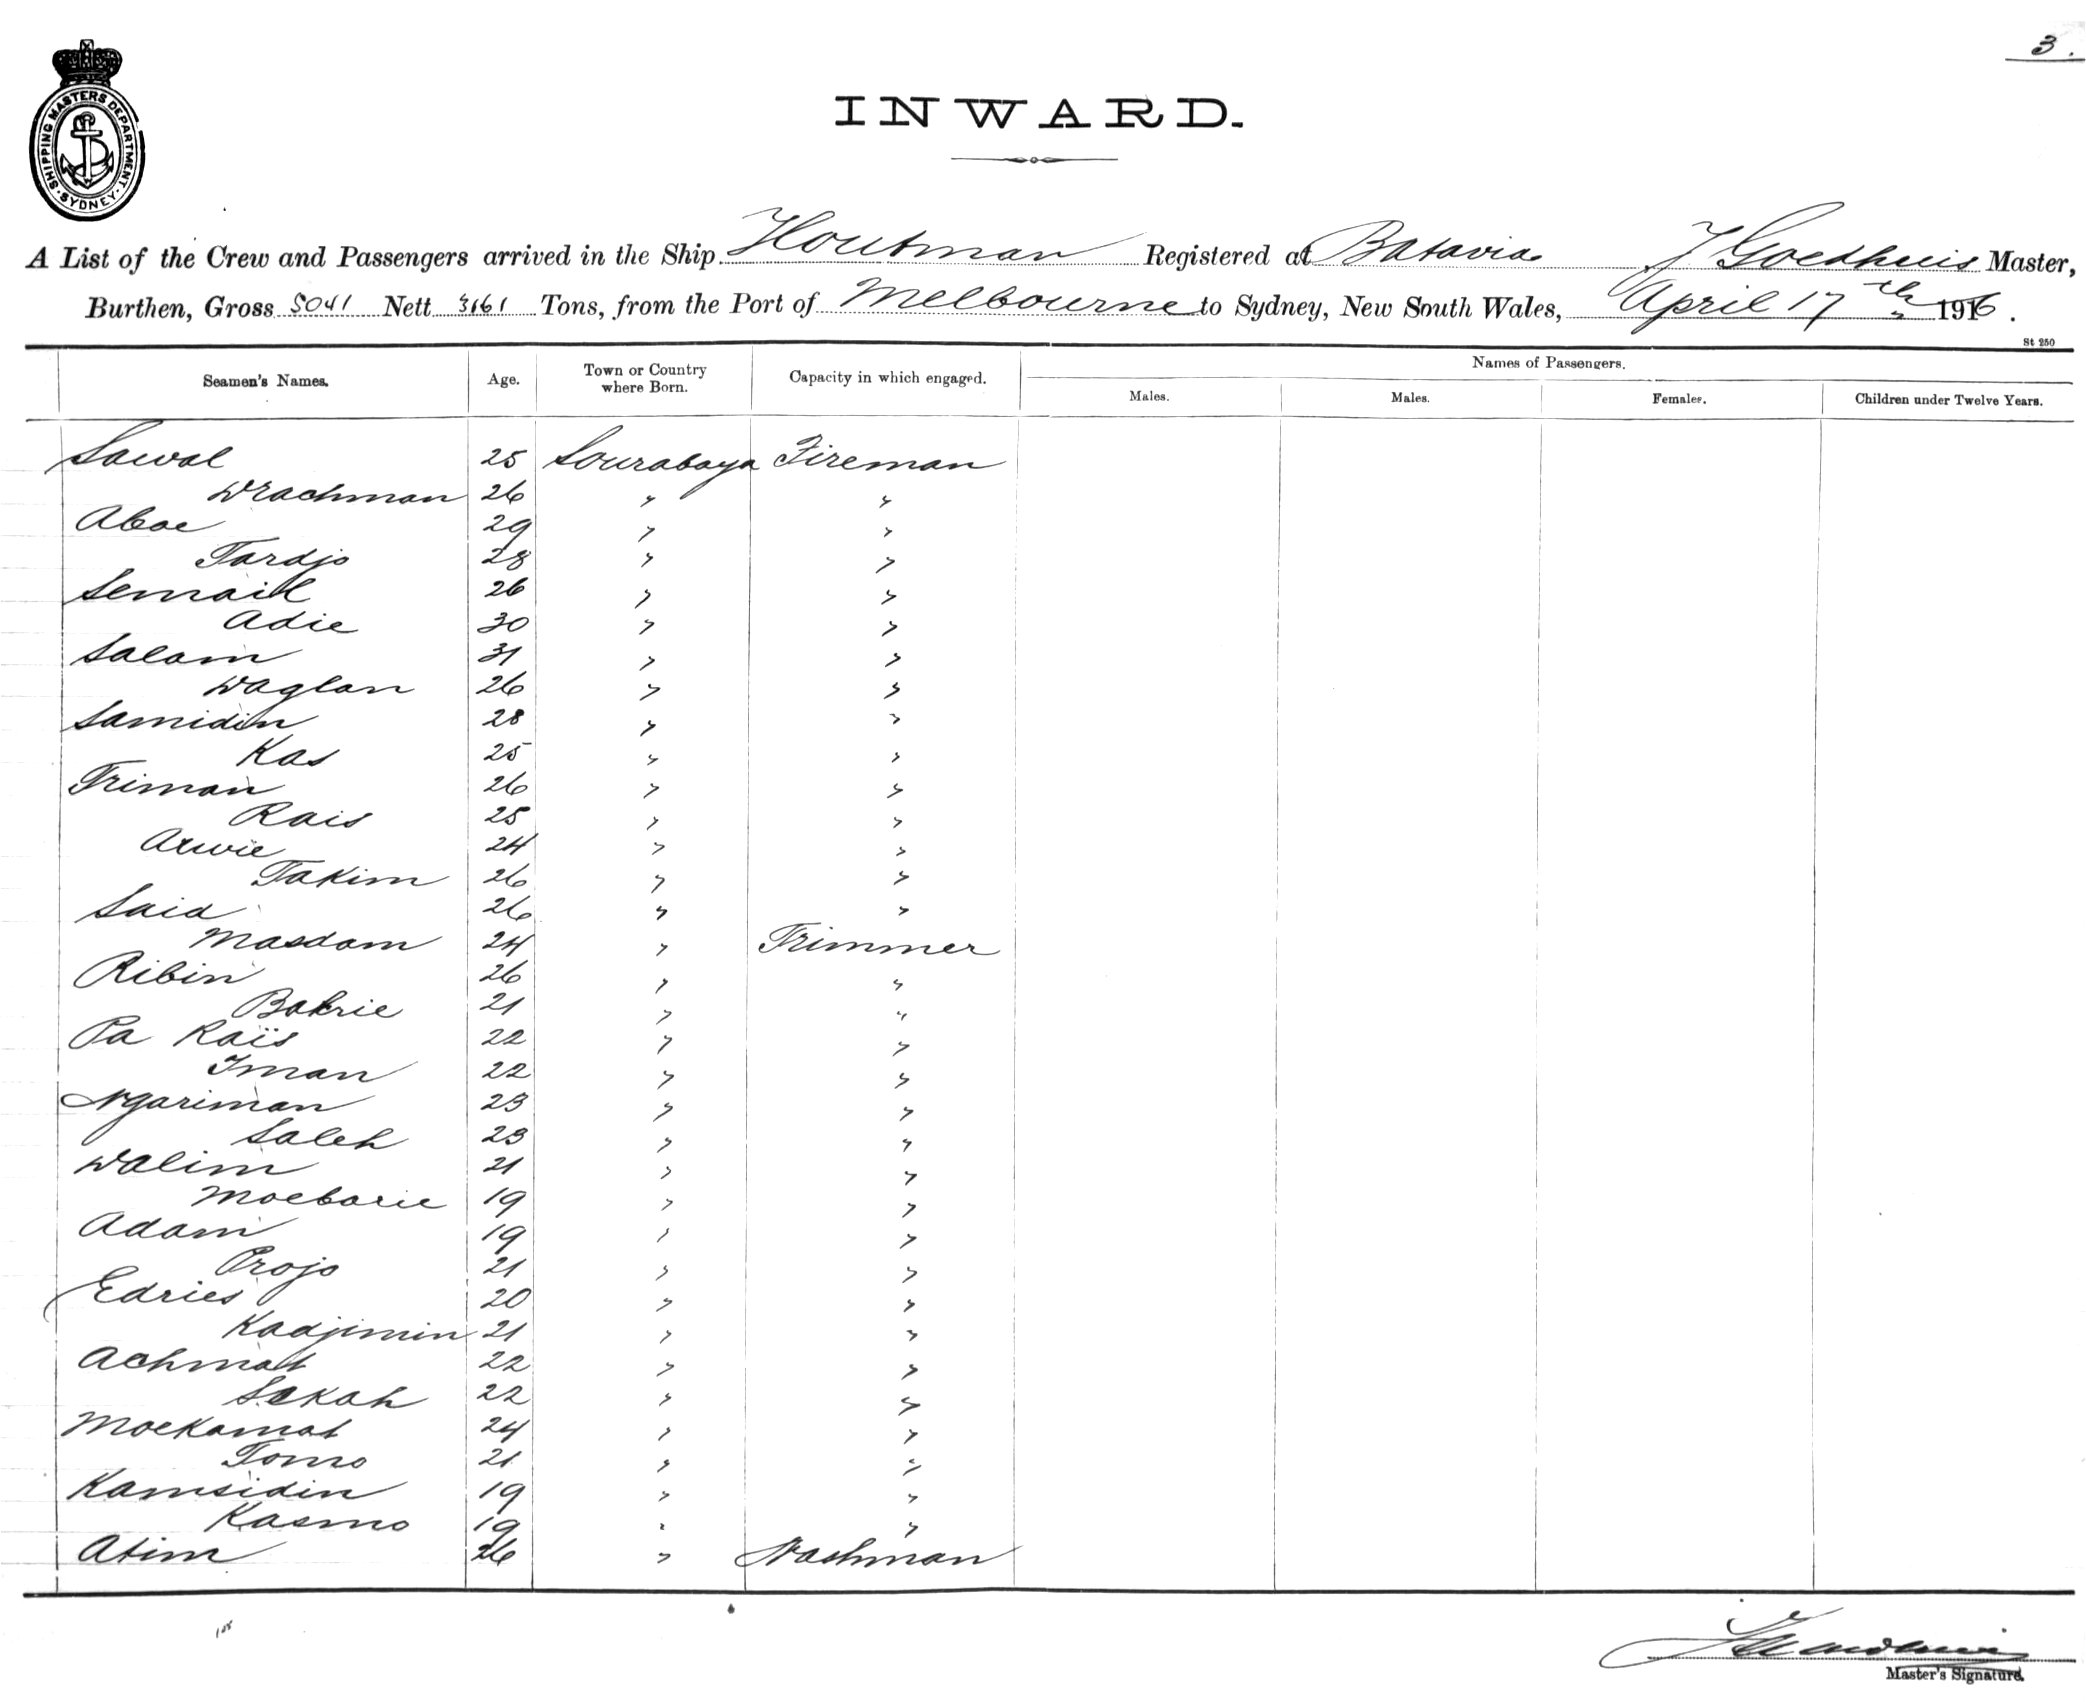 3.
SHIPPING MASTERS DEPARTMENT
SYDNEY
INWARD.
A List of the Crew and Passengers arrived in the Ship Houtman Registered at Batavia J Goedhuis Master,
Burthen, Gross 5041 Nett 3161 Tons, from the Port of Melbourne to Sydney, New South Wales, April 17th 1916.
St 250
Seamen's Names. Age. Town or Country where Born. Capacity in which engaged. Names of Passengers.
Males. Males. Females. Children under Twelve Years.
Sawal 25 Sourabaya Fireman
Wrachman 26 " "
Aboe 29 " "
Tardjo 28 " "
Semail 26 " "
Adie 30 " "
Salam 31 " "
Waglan 26 " "
Samidin 28 " "
Kas 25 " "
Triman 26 " "
Rais 25 " "
Arwie 24 " "
Takim 26 " "
Said 26 " "
Masdam 24 " Trimmer
Ribin 26 " "
Bakrie 21 " "
Pa Raïs 22 " "
Iman 22 " "
Ngariman 23 " "
Saleh 23 " "
Walim 21 " "
Moebarie 19 " "
Adam 19 " "
Projo 21 " "
Edries 20 " "
Kadjimin 21 " "
Achmat 22 " "
Sakah 22 " "
Moekamat 24 " "
Tomo 21 " "
Kamsidin 19 " "
Kasmo 19 " "
Atim 26 " Washman
Master's Signature.